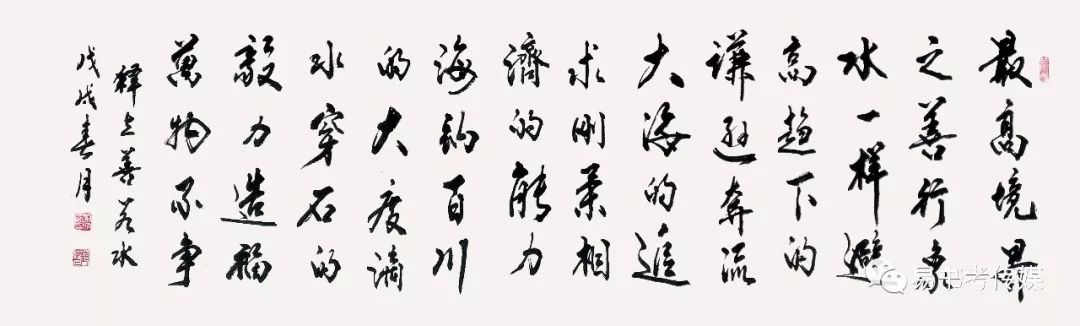 最高境界
之善行象
水一样避
高趋下的
谦逊奔流
大海的追
求刚柔相
濟的能力
海纳百川
的大度滴
水穿石的
毅力造福
萬物不争
释上善若水
戊戌春月
易书考传媒